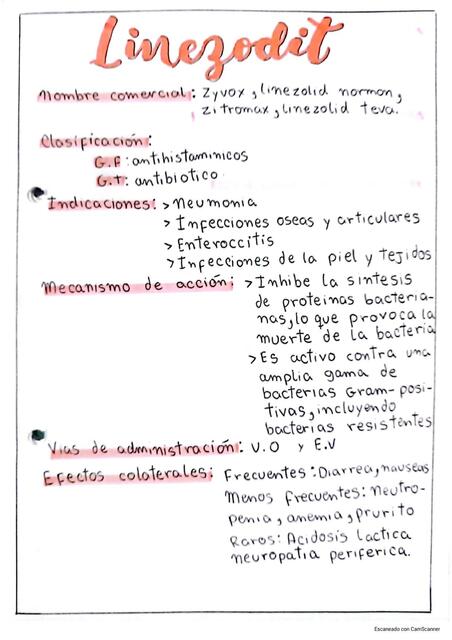 Linezodit
Nombre comercial: Zyvox, linezolid normon,
Zitromax, linezolid teva.
Clasificación:
G.F: antihistaminicos
G.T: antibiotico
Indicaciones: > Neumonia
> Infecciones oseas y articulares
> Enteroccitis
> Infecciones de la piel y tejidos
Mecanismo de acción: > Inhibe la sintesis
de proteinas bacteria-
nas, lo que provoca la
muerte de la bacteria
> Es activo contra una
amplia gama de
bacterias Gram-posi-
tivas, incluyendo
bacterias resistentes
Vias de administración: V.O y E.V
Efectos colaterales: Frecuentes: Diarrea, nauseas
Menos frecuentes: neutro-
penia, anemia, prurito
Raros: Acidosis lactica
neuropatia periferica.
Escaneado con CamScanner